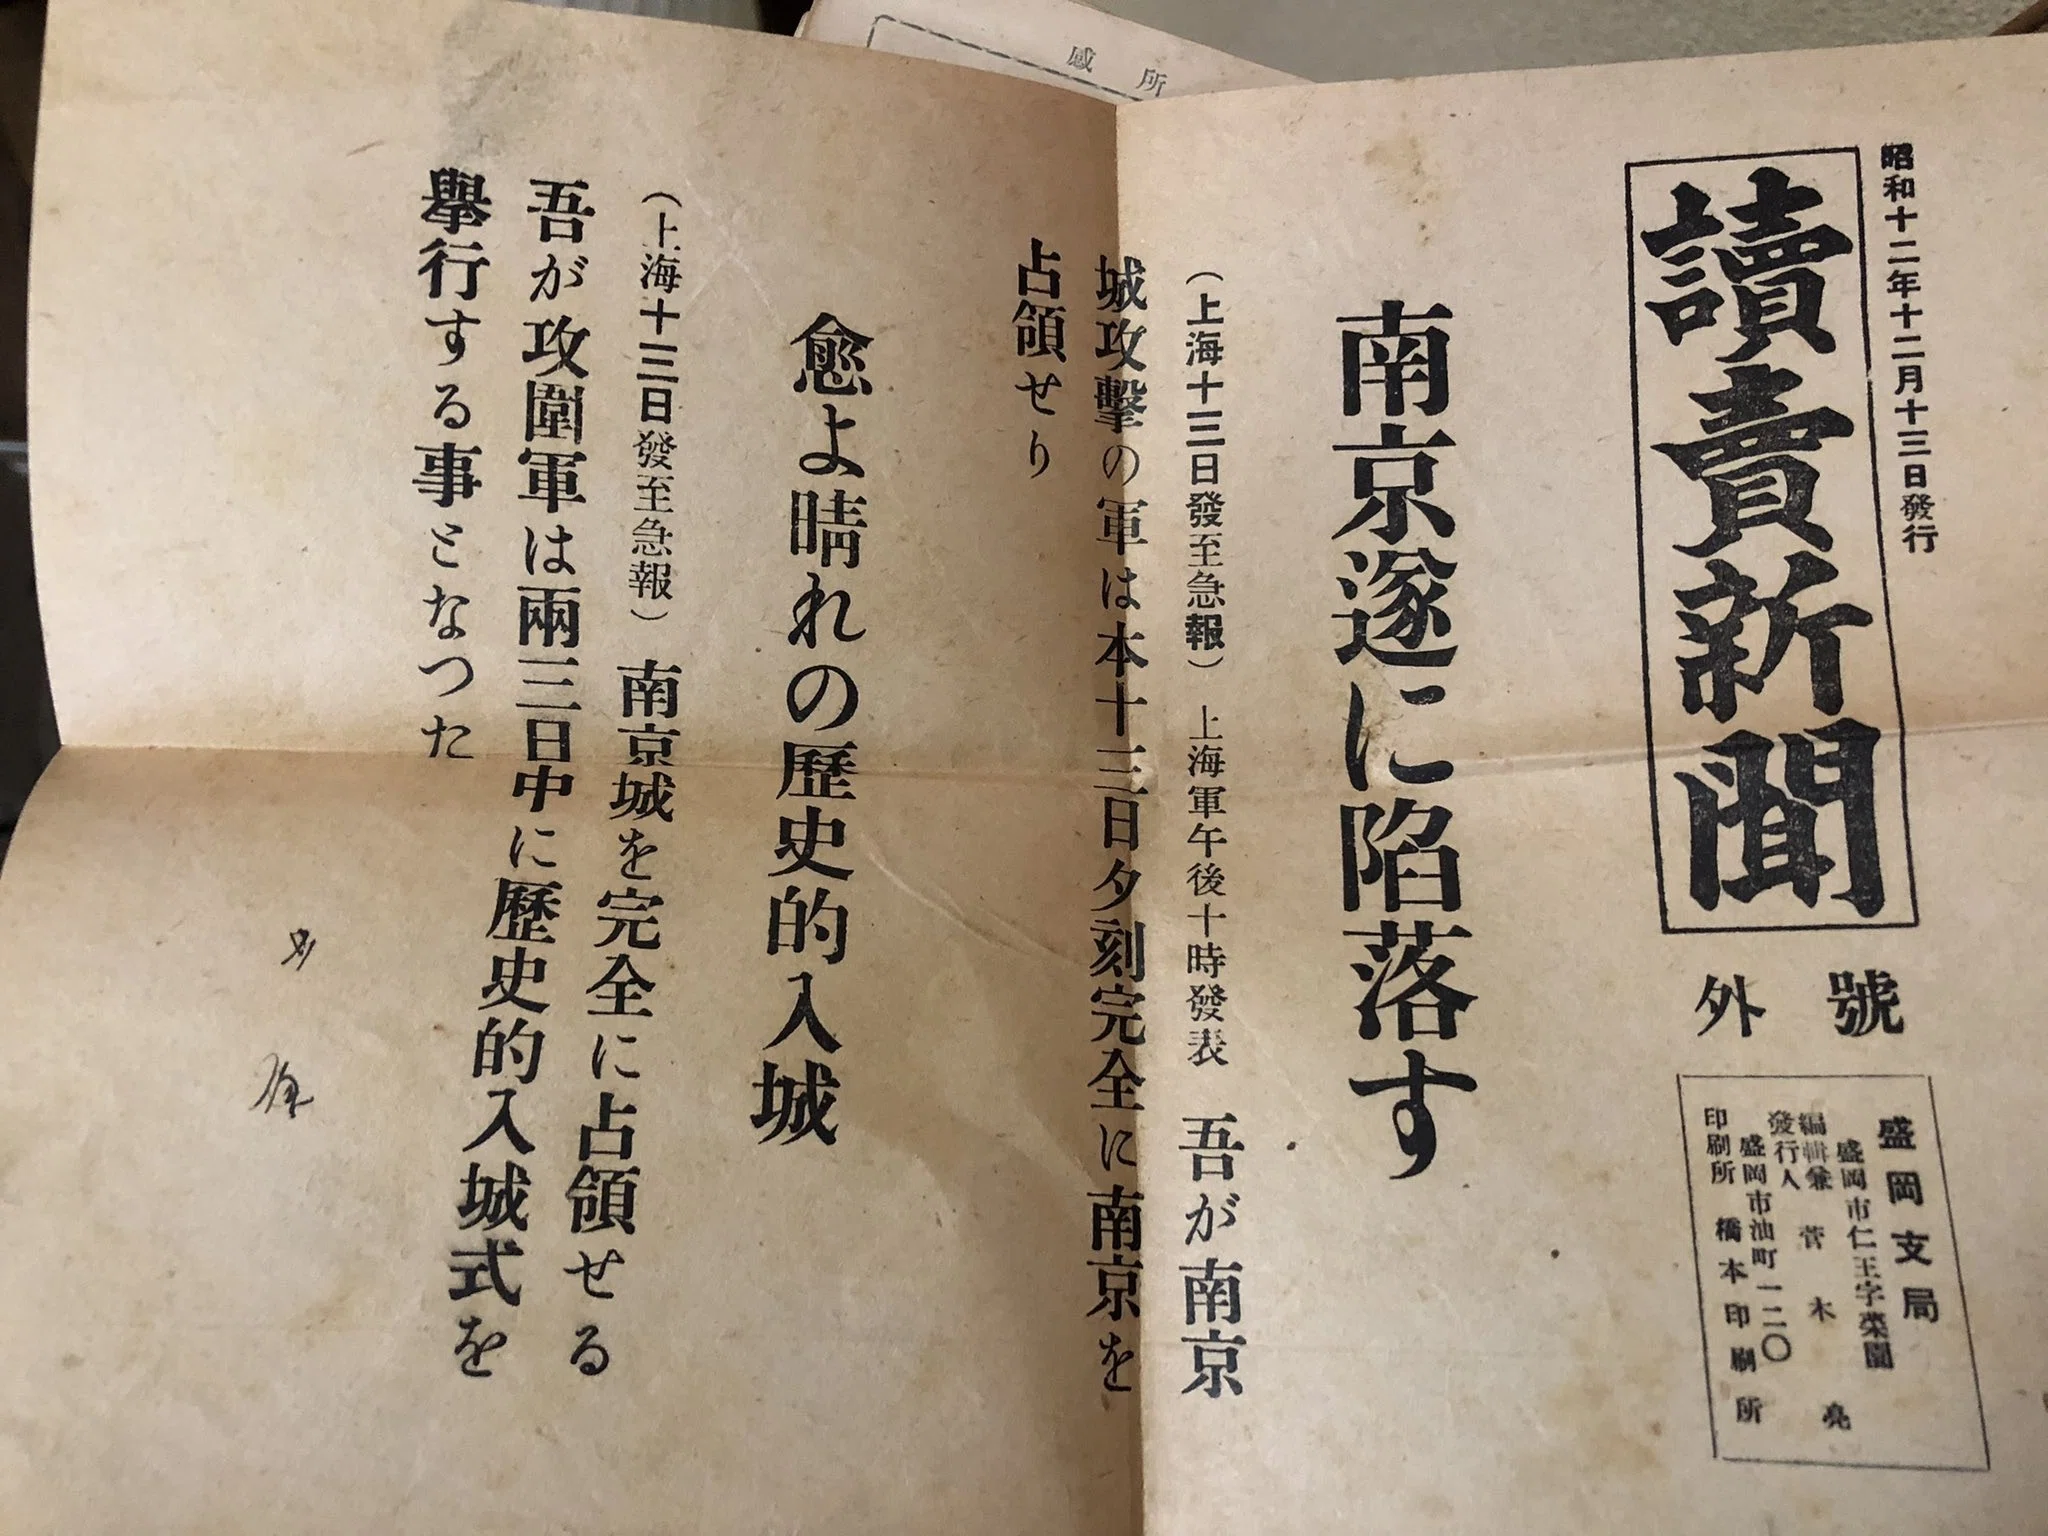 昭和十二年十二月十三日發行
讀賣新聞
外號
盛岡支局
盛岡市仁王字菜園
編輯兼發行人 菅木亮
盛岡市油町一二〇
印刷所 橋本印刷所
南京遂に陷落す
（上海十三日發至急報）上海軍午後十時發表 吾が南京
城攻擊の軍は本十三日夕刻完全に南京を
占領せり
愈よ晴れの歷史的入城
（上海十三日發至急報）南京城を完全に占領せる
吾が攻圍軍は兩三日中に歷史的入城式を
擧行する事となつた
感所